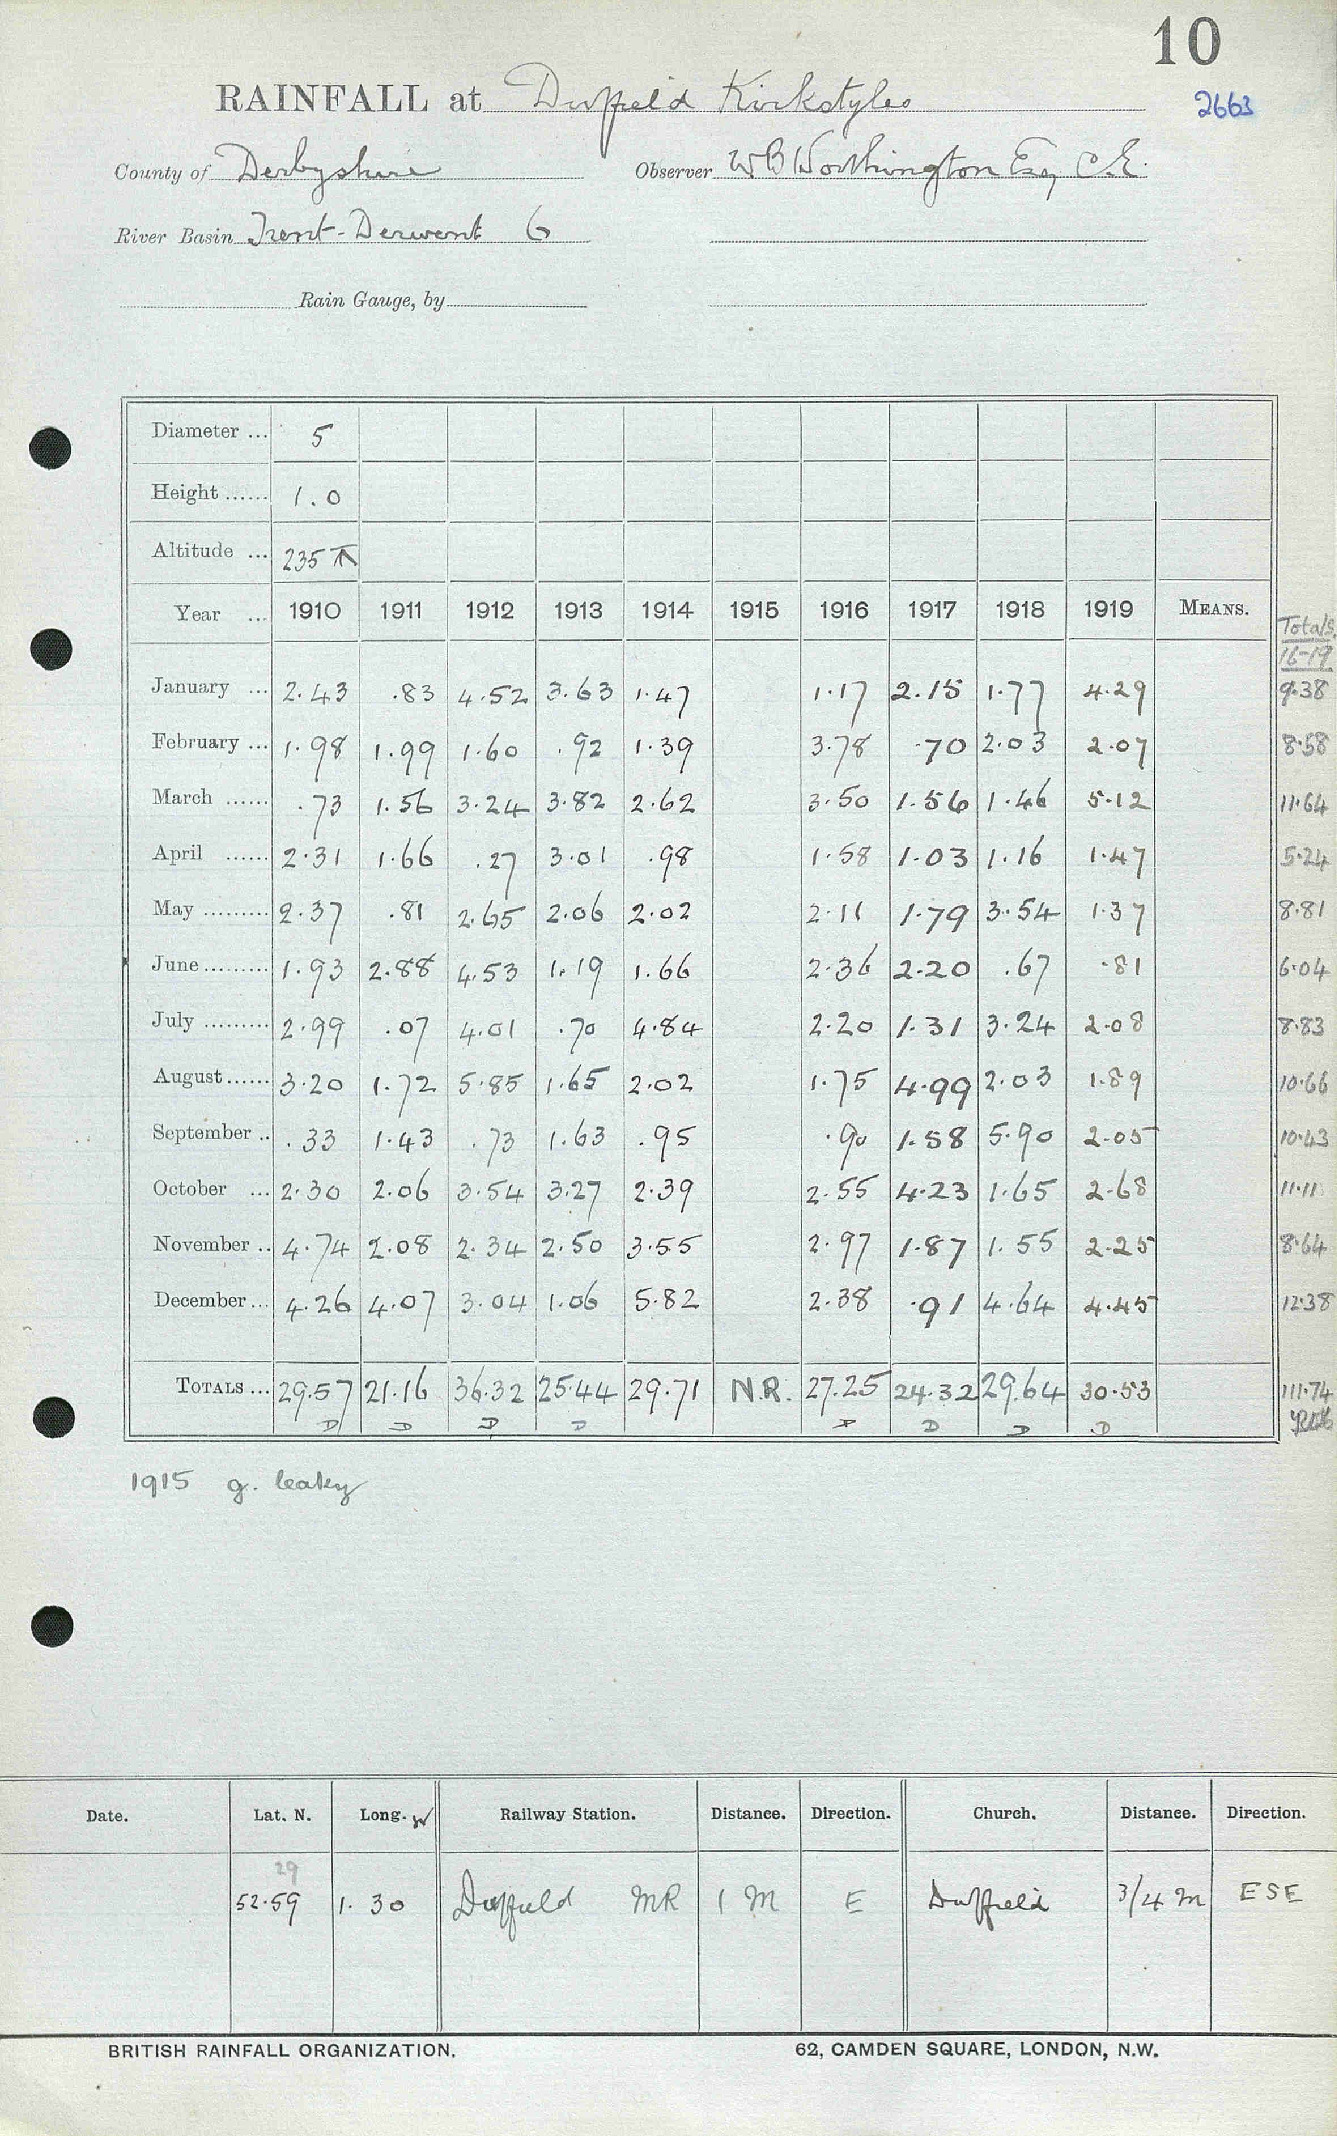 10
RAINFALL at Duffield Kirkstyles 2663
County of Derbyshire Observer W B Worthington Esq C.E.
River Basin Trent-Derwent 6
Rain Gauge, by
Diameter ... 5
Height ...... 1.0
Altitude ... 235
Year ... 1910 1911 1912 1913 1914 1915 1916 1917 1918 1919 MEANS. Totals
16-19
January ... 2.43 .83 4.52 3.63 1.47 1.17 2.15 1.77 4.29 9.38
February ... 1.98 1.99 1.60 .92 1.39 3.78 .70 2.03 2.07 8.58
March ...... .73 1.56 3.24 3.82 2.62 3.50 1.56 1.46 5.12 11.64
April ...... 2.31 1.66 .27 3.01 .98 1.58 1.03 1.16 1.47 5.24
May ......... 2.37 .81 2.65 2.06 2.02 2.11 1.79 3.54 1.37 8.81
June ......... 1.93 2.88 4.53 1.19 1.66 2.36 2.20 .67 .81 6.04
July ......... 2.99 .07 4.01 .70 4.84 2.20 1.31 3.24 2.08 8.83
August ...... 3.20 1.72 5.85 1.65 2.02 1.75 4.99 2.03 1.89 10.66
September .. .33 1.43 .73 1.63 .95 .90 1.58 5.90 2.05 10.43
October ... 2.30 2.06 3.54 3.27 2.39 2.55 4.23 1.65 2.68 11.11
November .. 4.74 2.08 2.34 2.50 3.55 2.97 1.87 1.55 2.25 8.64
December ... 4.26 4.07 3.04 1.06 5.82 2.38 .91 4.64 4.45 12.38
TOTALS ... 29.57 21.16 36.32 25.44 29.71 N.R. 27.25 24.32 29.64 30.53 111.74
D D D D D D D D
1915 g. leaky
Date. Lat. N. Long. W Railway Station. Distance. Direction. Church. Distance. Direction.
29
52.59 1. 30 Duffield MR 1 M E Duffield 3/4 m ESE
BRITISH RAINFALL ORGANIZATION. 62, CAMDEN SQUARE, LONDON, N.W.